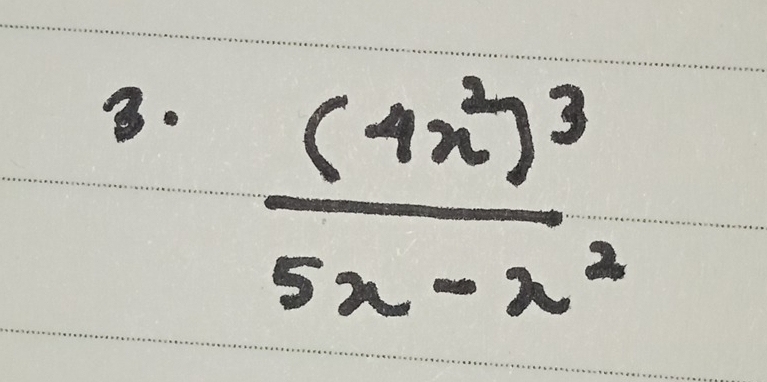 3. (4x²)³
5x - x²